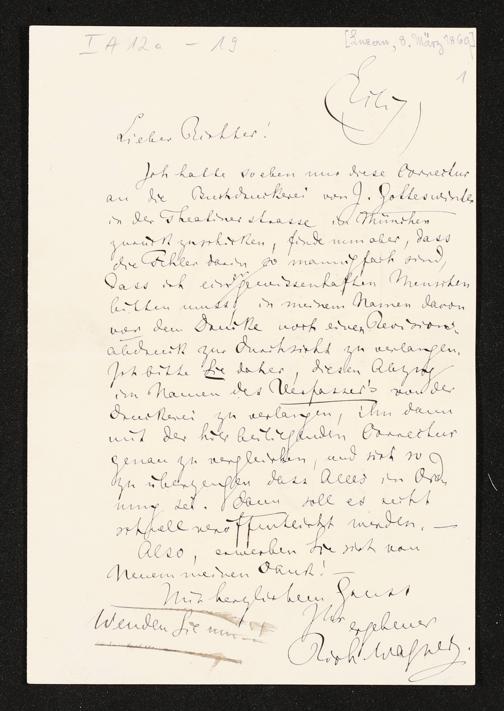 I A 12a - 19
[Luzern, 8. März 1869]
1
Eilig
Lieber Richter!
Ich hatte soeben nur diese Correctur
an die Buchdruckerei von J. Gotteswinter
in der Theatinerstrasse in München
zurückzuschicken, finde nun aber, dass
die Fehler darin so mannigfach sind,
dass ich einen gewissenhaften Menschen
bitten muss, in meinem Namen davon
vor dem Drucke noch einen Revisions-
abdruck zur Durchsicht zu verlangen.
Ich bitte Sie daher, diesen Abzug
im Namen des Verfasser's von der
Druckerei zu verlangen, ihn dann
mit der hier beiliegenden Correctur
genau zu vergleichen, und sich so
zu überzeugen dass Alles in Ord-
nung sei. Dann soll es recht
schnell veröffentlicht werden. —
Also, erwerben Sie sich von
Neuem meinen Dank! —
Mit herzlichem Gruss
Ihr
ergebener
Rich. Wagner.
Wenden Sie um!!